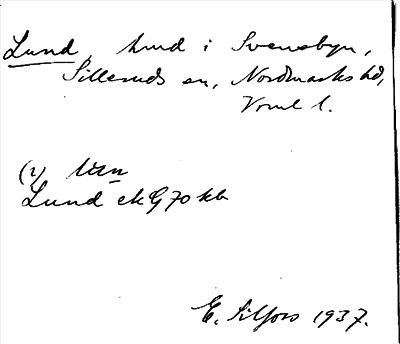 Lund, hmd i Svensbyn,
Silleruds sn, Nordmarks hd,
Vrml l.
(1)
Lund ek G 70 kb
E. Silfors 1937.